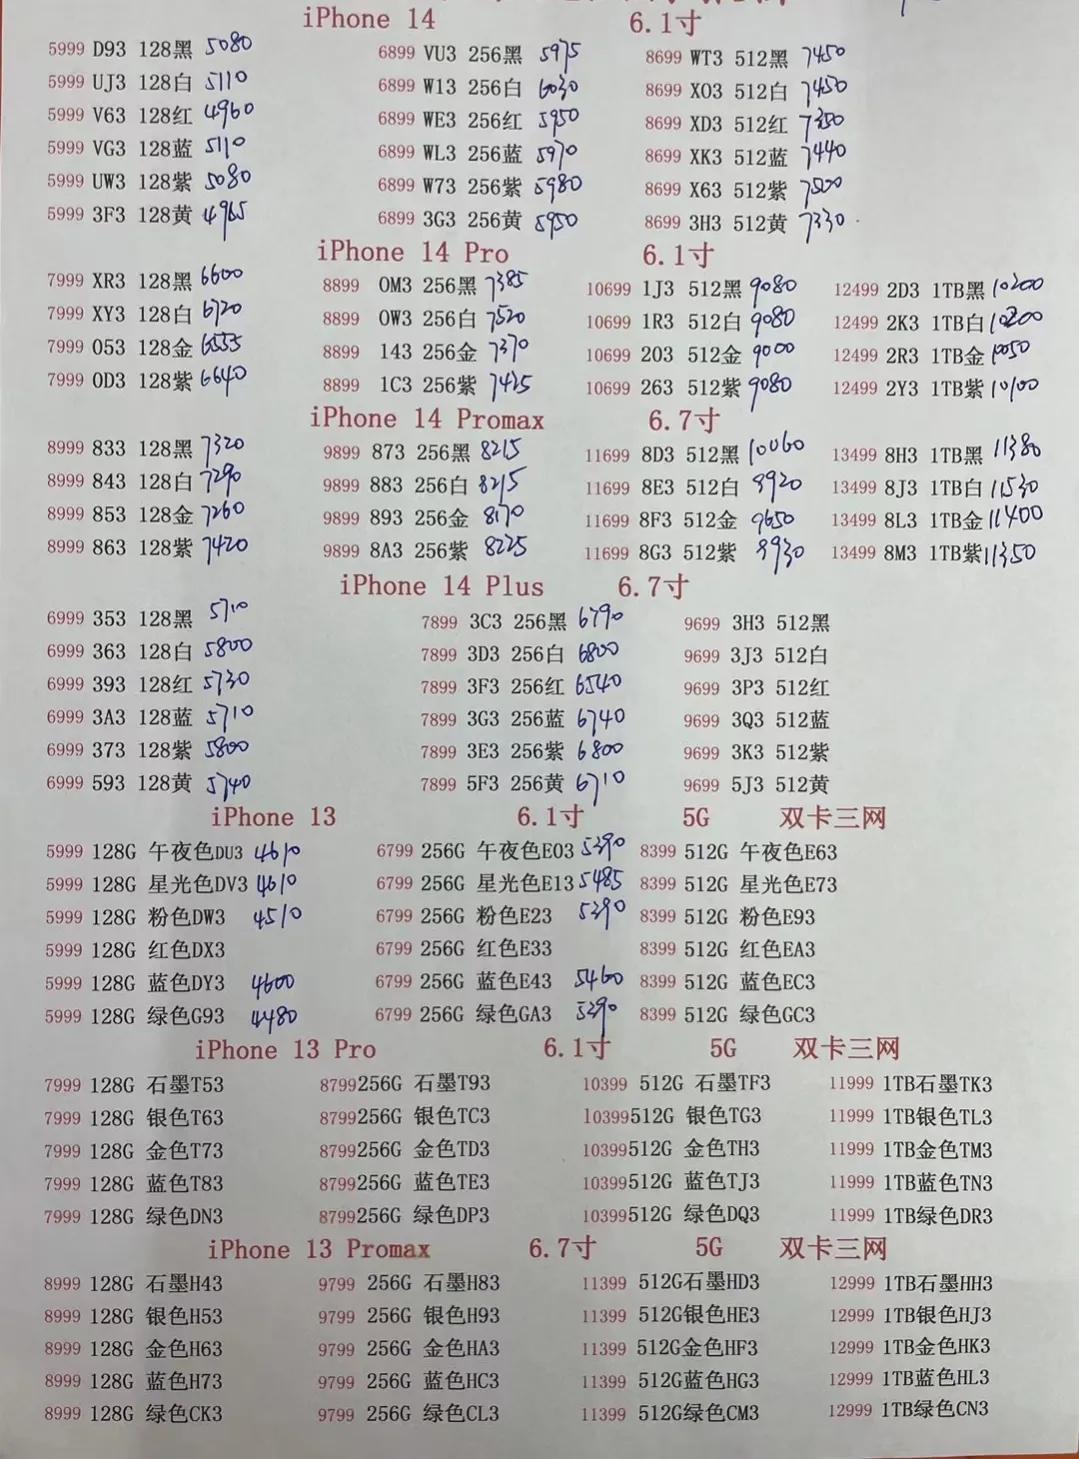 iPhone 14 6.1寸
5999 D93 128黑 5080 6899 VU3 256黑 5975 8699 WT3 512黑 7450
5999 UJ3 128白 5110 6899 W13 256白 6030 8699 XO3 512白 7450
5999 V63 128红 4960 6899 WE3 256红 5950 8699 XD3 512红 7350
5999 VG3 128蓝 5110 6899 WL3 256蓝 5970 8699 XK3 512蓝 7440
5999 UW3 128紫 5080 6899 W73 256紫 5980 8699 X63 512紫 7500
5999 3F3 128黄 4965 6899 3G3 256黄 5950 8699 3H3 512黄 7330
iPhone 14 Pro 6.1寸
7999 XR3 128黑 6600 8899 0M3 256黑 7385 10699 1J3 512黑 9080 12499 2D3 1TB黑 10200
7999 XY3 128白 6720 8899 0W3 256白 7520 10699 1R3 512白 9080 12499 2K3 1TB白 10200
7999 053 128金 6555 8899 143 256金 7370 10699 203 512金 9000 12499 2R3 1TB金 10050
7999 0D3 128紫 6640 8899 1C3 256紫 7425 10699 263 512紫 9080 12499 2Y3 1TB紫 10100
iPhone 14 Promax 6.7寸
8999 833 128黑 7320 9899 873 256黑 8215 11699 8D3 512黑 10060 13499 8H3 1TB黑 11380
8999 843 128白 7290 9899 883 256白 8215 11699 8E3 512白 9920 13499 8J3 1TB白 11530
8999 853 128金 7260 9899 893 256金 8170 11699 8F3 512金 9650 13499 8L3 1TB金 11400
8999 863 128紫 7420 9899 8A3 256紫 8225 11699 8G3 512紫 9930 13499 8M3 1TB紫 11350
iPhone 14 Plus 6.7寸
6999 353 128黑 5710 7899 3C3 256黑 6790 9699 3H3 512黑
6999 363 128白 5800 7899 3D3 256白 6800 9699 3J3 512白
6999 393 128红 5730 7899 3F3 256红 6540 9699 3P3 512红
6999 3A3 128蓝 5710 7899 3G3 256蓝 6740 9699 3Q3 512蓝
6999 373 128紫 5800 7899 3E3 256紫 6800 9699 3K3 512紫
6999 593 128黄 5740 7899 5F3 256黄 6710 9699 5J3 512黄
iPhone 13 6.1寸 5G 双卡三网
5999 128G 午夜色DU3 4610 6799 256G 午夜色E03 5390 8399 512G 午夜色E63
5999 128G 星光色DV3 4610 6799 256G 星光色E13 5485 8399 512G 星光色E73
5999 128G 粉色DW3 4510 6799 256G 粉色E23 5290 8399 512G 粉色E93
5999 128G 红色DX3 6799 256G 红色E33 8399 512G 红色EA3
5999 128G 蓝色DY3 4600 6799 256G 蓝色E43 5460 8399 512G 蓝色EC3
5999 128G 绿色G93 4480 6799 256G 绿色GA3 5290 8399 512G 绿色GC3
iPhone 13 Pro 6.1寸 5G 双卡三网
7999 128G 石墨T53 8799 256G 石墨T93 10399 512G 石墨TF3 11999 1TB石墨TK3
7999 128G 银色T63 8799 256G 银色TC3 10399 512G 银色TG3 11999 1TB银色TL3
7999 128G 金色T73 8799 256G 金色TD3 10399 512G 金色TH3 11999 1TB金色TM3
7999 128G 蓝色T83 8799 256G 蓝色TE3 10399 512G 蓝色TJ3 11999 1TB蓝色TN3
7999 128G 绿色DN3 8799 256G 绿色DP3 10399 512G 绿色DQ3 11999 1TB绿色DR3
iPhone 13 Promax 6.7寸 5G 双卡三网
8999 128G 石墨H43 9799 256G 石墨H83 11399 512G石墨HD3 12999 1TB石墨HH3
8999 128G 银色H53 9799 256G 银色H93 11399 512G银色HE3 12999 1TB银色HJ3
8999 128G 金色H63 9799 256G 金色HA3 11399 512G金色HF3 12999 1TB金色HK3
8999 128G 蓝色H73 9799 256G 蓝色HC3 11399 512G蓝色HG3 12999 1TB蓝色HL3
8999 128G 绿色CK3 9799 256G 绿色CL3 11399 512G绿色CM3 12999 1TB绿色CN3